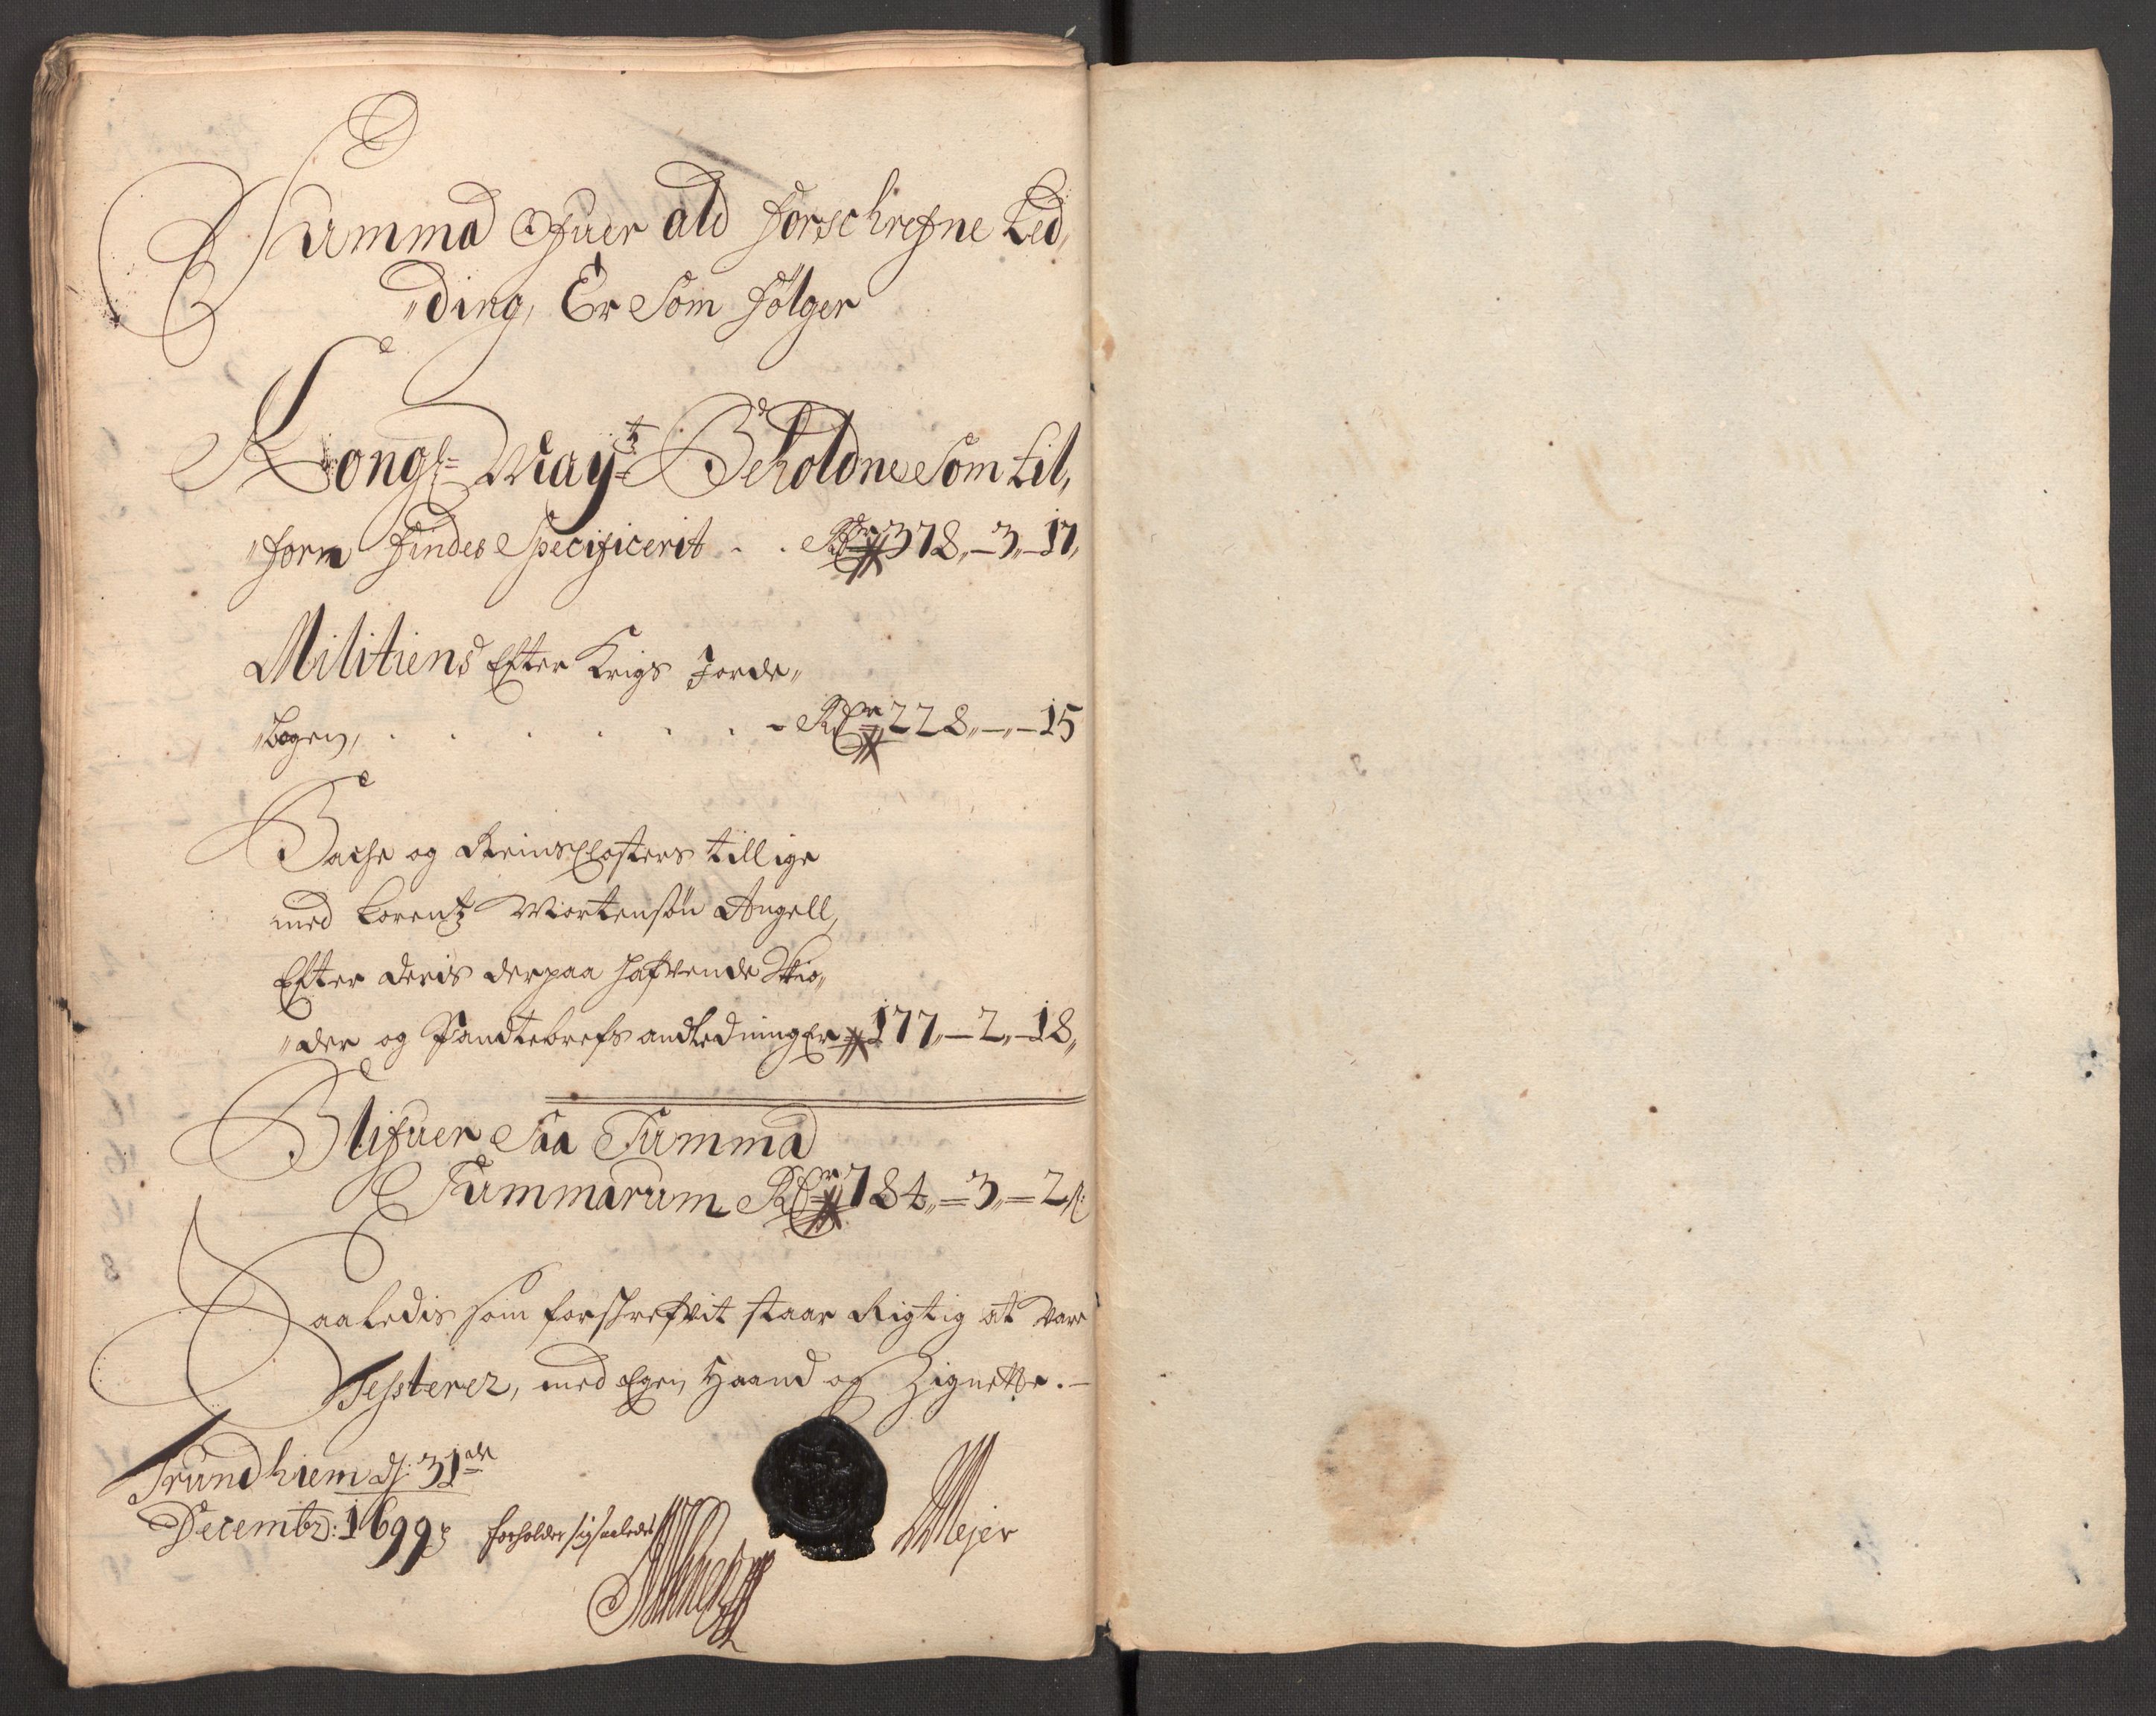 Summa Ofuer ald forschrefne Led,
"ding, Er Som følger
Kongl= May=tz Beholdne Som til,
"forn findes Specificerit . . Rdr 378,,-3,,-17,
Militiens Efter Krigs Jorde,,
"bogen, . . . . . . - Rdr 228,,-,,-15
Bache og Reins Closters tillige
med Lorentz Mortensøn Angell,
Efter deris derpaa hafvende Skiø,,
"der og Pandtebrefs andledninger 177,,-2,,-18,,
Blifuer Saa Summa
Summarum Rdr 784,,=3,,=2 s:
Saaledis som forskrefvit staar Rigtig at vere
Testerer, med Egen Haand og Zignette.-
Trundhiem d: 31de
Decembr: 1699 forholder sig saaledes
Mejer